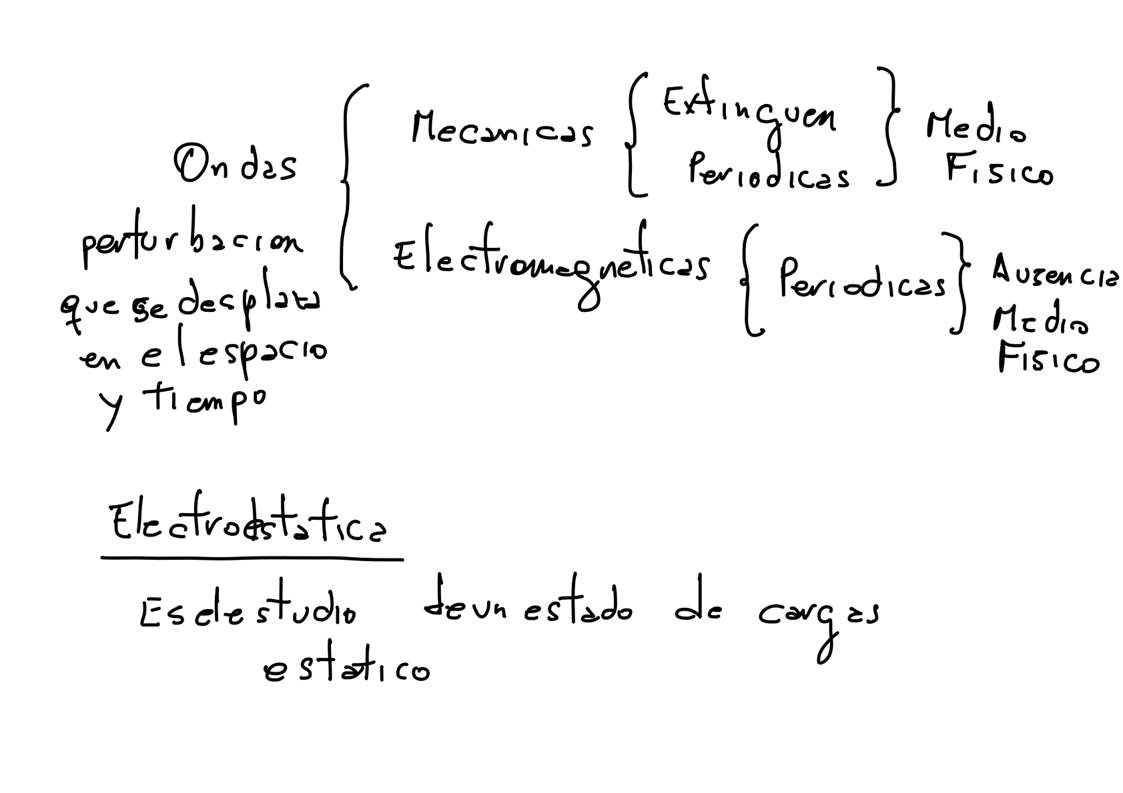 Ondas
perturbacion
que se desplaza
en el espacio
y tiempo
Mecanicas
Extinguen
Periodicas
Medio
Fisico
Electromagneticas
Periodicas
Ausencia
Medio
Fisico
Electroestatica
Es el estudio de un estado de cargas
estatico